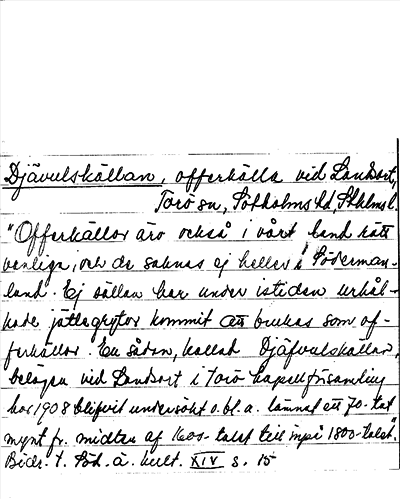 Djävulskällan, offerkälla vid Landsort,
Torö sn, Sotholms hd, Sthlms l.
"Offerkällor äro också i vårt land rätt
vanliga, och de saknas ej heller i Söderman-
land. Ej sällan har under istiden urhål-
kade jättegrytor kommit att brukas som of-
ferkällor. En sådan, kallad Djäfvulskällan,
belägen vid Landsort i Torö kapellförsamling
har 1908 blifvit undersökt o. bl. a. lämnat ett 70-tal
mynt fr. midten af 1600-talet till inpå 1800-talet."
Bidr. t. Söd. ä. kult. XIV s. 15